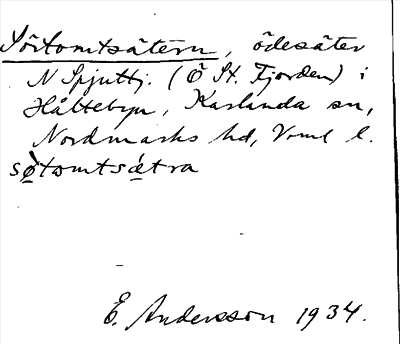 Sörtomtsätern, ödesäter
N Spjuttj. (Ö St. Fjorden) i
Håltebyn, Karlanda sn,
Nordmarks hd, Vrml l.
sø̀tωmtsǽtra
E. Andersson 1934.